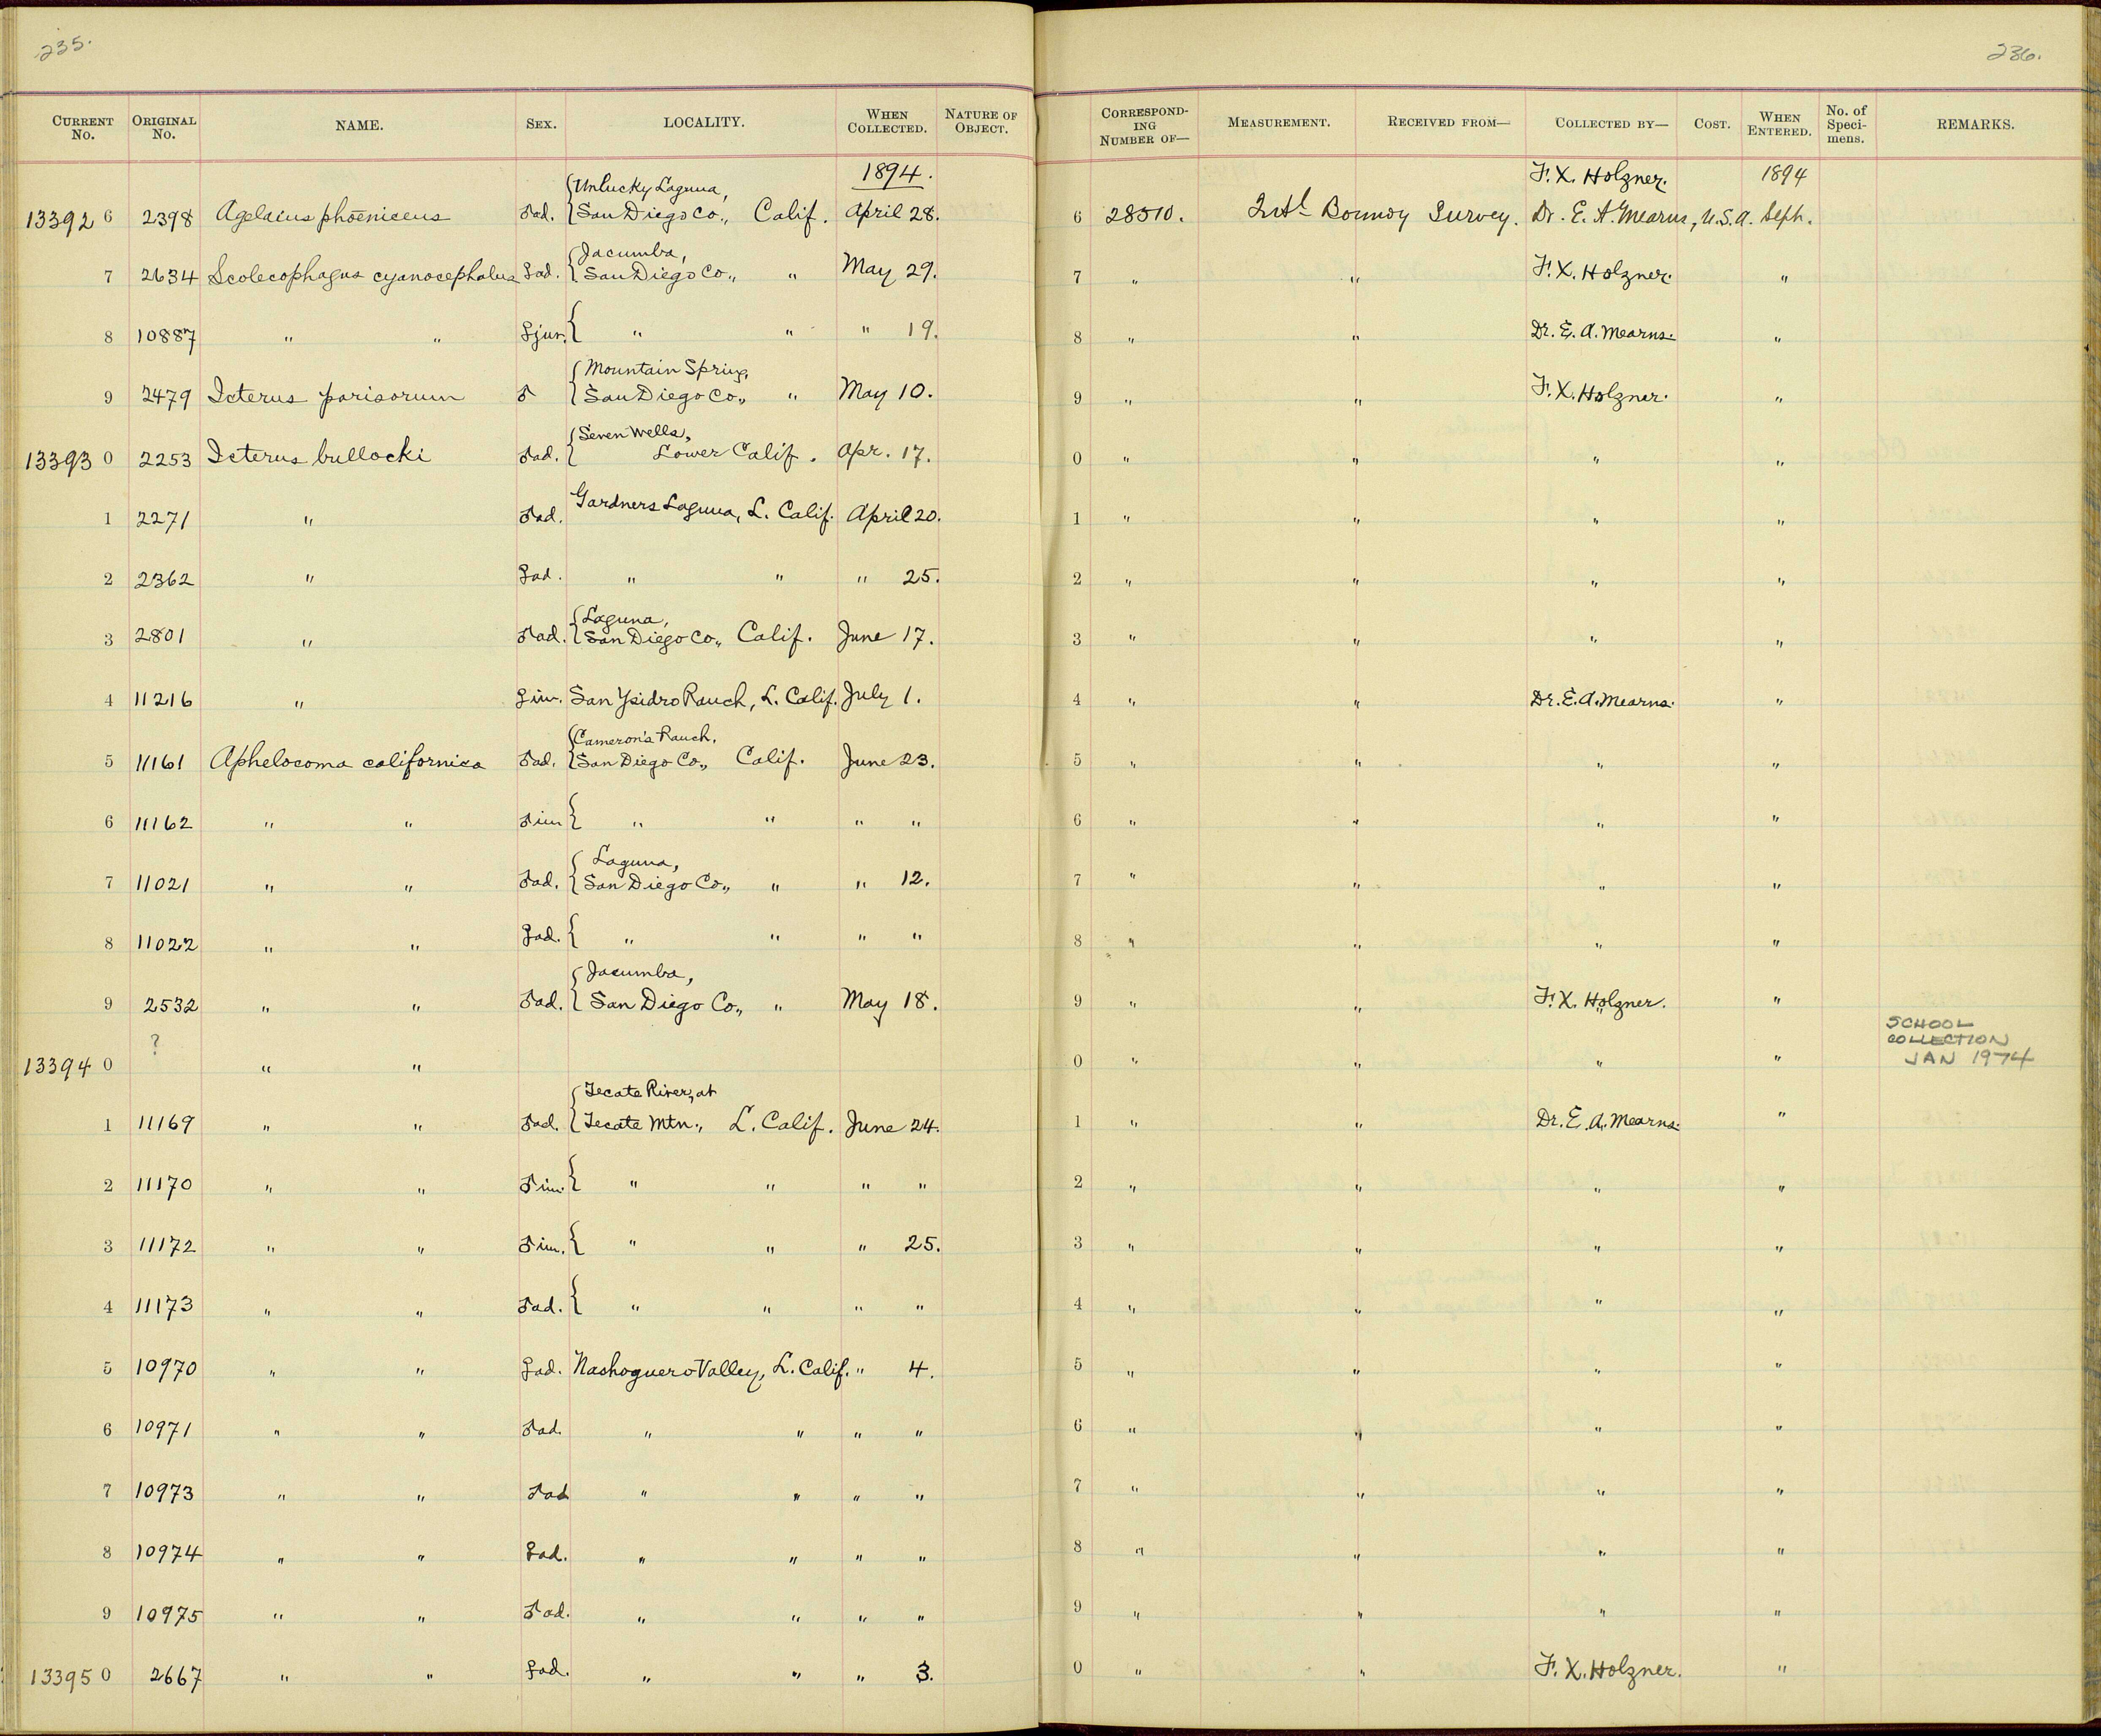 235.
236.
CURRENT No. ORIGINAL No. NAME. SEX. LOCALITY. WHEN COLLECTED. NATURE OF OBJECT. CORRESPONDING NUMBER OF— MEASUREMENT. RECEIVED FROM— COLLECTED BY— COST. WHEN ENTERED. No. of Specimens. REMARKS.
1894. F. X. Holzner. 1894
Unlucky Laguna,
13392 6 2398 Agelaius phoeniceus ♂ad. San Diego Co., Calif. April 28. 6 28510. Intl Boundy Survey. Dr. E. A. Mearns, U.S.A. Seph.
Jacumba,
7 2634 Scolecophagus cyanocephalus ♀ad. San Diego Co., " May 29. 7 " " F. X. Holzner. "
8 10887 " " ♀jun. " " " 19. 8 " " Dr. E. A. Mearns. "
Mountain Spring,
9 2479 Icterus parisorum ♂ San Diego Co., " May 10. 9 " " F. X. Holzner. "
Seven Wells,
13393 0 2253 Icterus bullocki ♂ad. Lower Calif. Apr. 17. 0 " " " "
1 2271 " ♂ad. Gardners Laguna, L. Calif. April 20. 1 " " " "
2 2362 " ♀ad. " " " 25. 2 " " " "
Laguna,
3 2801 " ♂ad. San Diego Co., Calif. June 17. 3 " " " "
4 11216 " ♀im. San Ysidro Ranch, L. Calif. July 1. 4 " " Dr. E. A. Mearns. "
Cameron's Ranch,
5 11161 Aphelocoma californica ♂ad. San Diego Co., Calif. June 23. 5 " " " "
6 11162 " " ♂im " " " " 6 " " " "
Laguna,
7 11021 " " ♂ad. San Diego Co., " " 12. 7 " " " "
8 11022 " " ♀ad. " " " " 8 " " " "
Jacumba,
9 2532 " " ♂ad. San Diego Co., " May 18. 9 " " F. X. Holzner. "
SCHOOL
COLLECTION
13394 0 ? " " 0 " " " " JAN 1974
Tecate River, at
1 11169 " " ♂ad. Tecate Mtn., L. Calif. June 24. 1 " " Dr. E. A. Mearns. "
2 11170 " " ♂im. " " " " 2 " " " "
3 11172 " " ♂im. " " " 25. 3 " " " "
4 11173 " " ♂ad. " " " " 4 " " " "
5 10970 " " ♀ad. Nachoguero Valley, L. Calif. " 4. 5 " " " "
6 10971 " " ♂ad. " " " " 6 " " " "
7 10973 " " ♂ad " " " " 7 " " " "
8 10974 " " ♀ad. " " " " 8 " " " "
9 10975 " " ♂ad. " " " " 9 " " " "
13395 0 2667 " " ♀ad. " " " 3. 0 " " F. X. Holzner. "